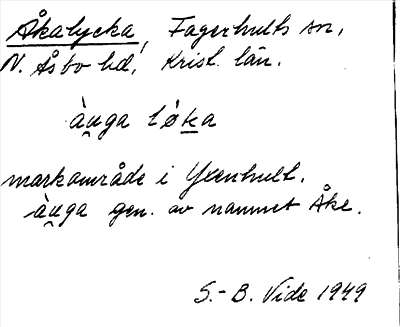 Åkalycka, Fagerhults sn,
N. Åsbo hd, Krist. län.
àu̯ga lǿka
markområde i Yxenhult.
àu̯ga gen. av namnet Åke.
S.-B. Vide 1949